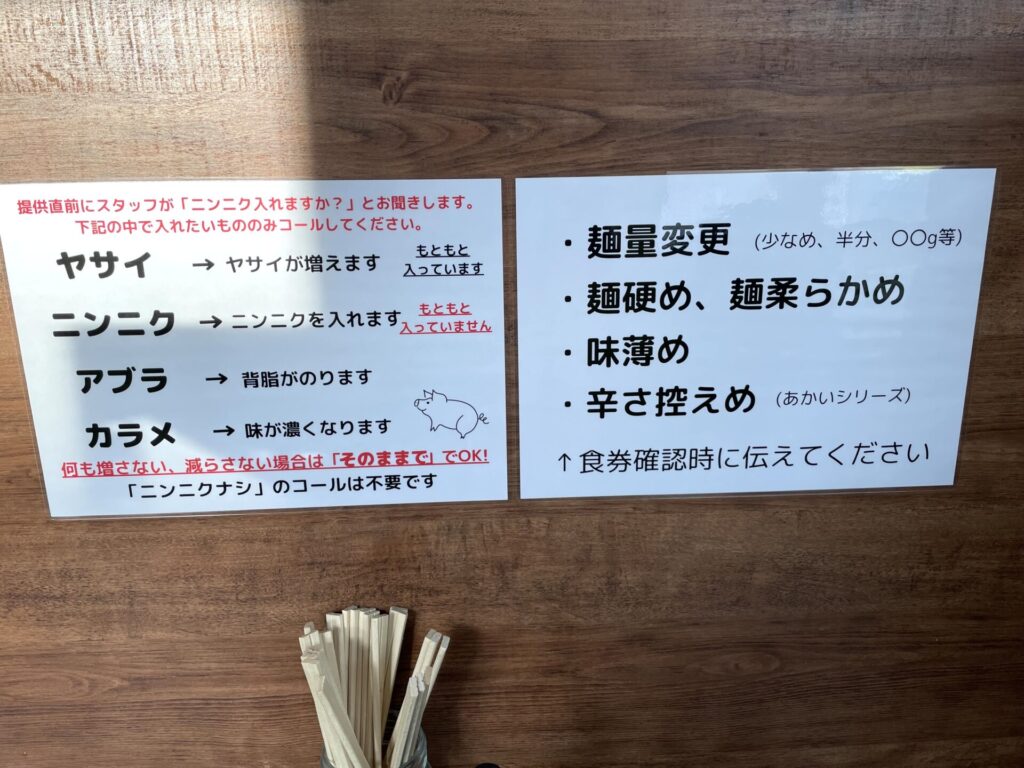 提供直前にスタッフが「ニンニク入れますか？」とお聞きします。
下記の中で入れたいもののみコールしてください。
ヤサイ → ヤサイが増えます もともと
入っています
ニンニク → ニンニクを入れます もともと
入っていません
アブラ → 背脂がのります
カラメ → 味が濃くなります
何も増さない、減らさない場合は「そのままで」でOK!
「ニンニクナシ」のコールは不要です
・麺量変更 (少なめ、半分、〇〇g等)
・麺硬め、麺柔らかめ
・味薄め
・辛さ控えめ (あかいシリーズ)
↑食券確認時に伝えてください